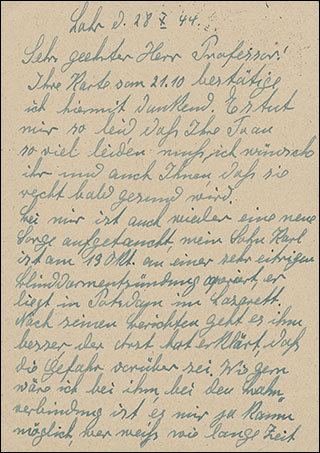 Lahr d. 28 X 44.
Sehr geehrter Herr Professor!
Ihre Karte vom 21.10 bestätige
ich hiermit dankend. Es tut
mir so leid daß Ihre Frau
so viel leiden muß, ich wünsche
ihr und auch Ihnen, daß sie
recht bald gesund wird.
Bei mir ist auch wieder eine neue
Sorge aufgetaucht, mein Sohn Karl
ist am 19 Okt. an einer sehr eitrigen
Blinddarmentzündung operiert, er
liegt in Potsdam im Lazarett.
Nach seinen berichten geht es ihm
besser, der Arzt hat erklärt, daß
die Gefahr vorüber sei, Wie gern
wäre ich bei ihm bei den
verbindung ist es mir ja kaum
möglich, wer weiß wie lange Zeit